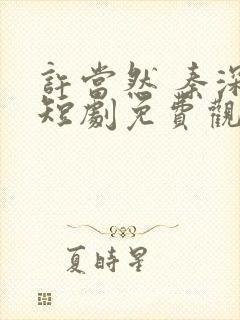 許當然 秦深
短劇免費觀
夏時星